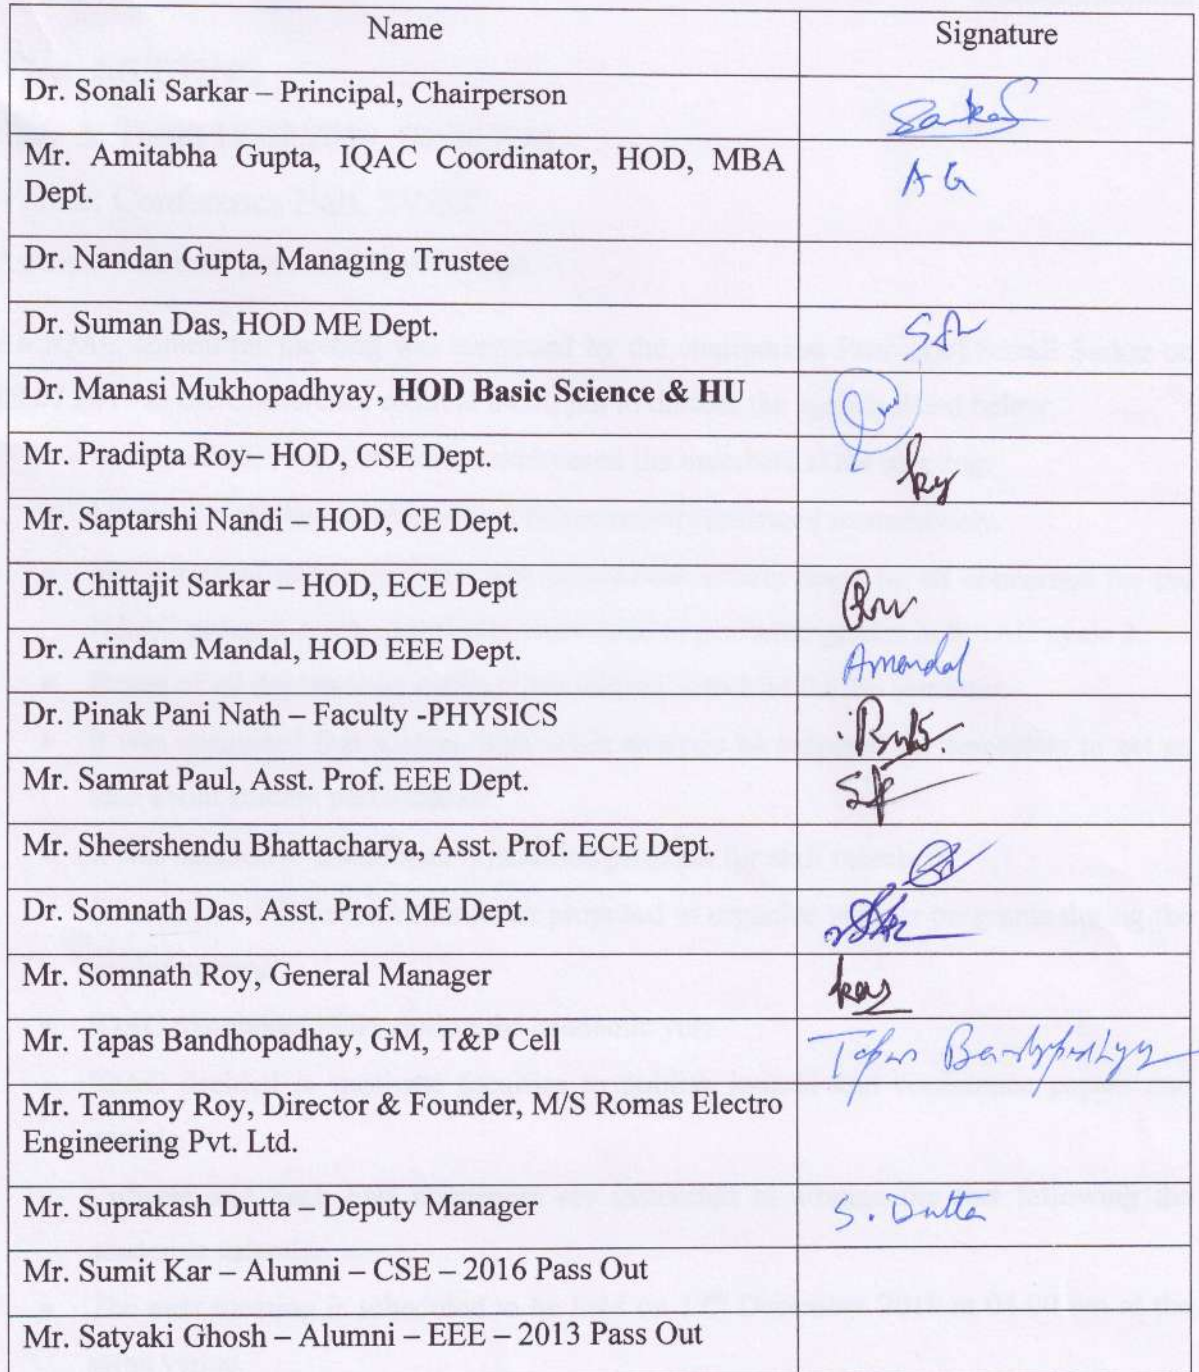 Name Signature
Dr. Sonali Sarkar – Principal, Chairperson Sarkar
Mr. Amitabha Gupta, IQAC Coordinator, HOD, MBA
Dept. A G
Dr. Nandan Gupta, Managing Trustee
Dr. Suman Das, HOD ME Dept.
Dr. Manasi Mukhopadhyay, HOD Basic Science & HU
Mr. Pradipta Roy– HOD, CSE Dept.
Mr. Saptarshi Nandi – HOD, CE Dept.
Dr. Chittajit Sarkar – HOD, ECE Dept
Dr. Arindam Mandal, HOD EEE Dept. Amandal
Dr. Pinak Pani Nath – Faculty -PHYSICS
Mr. Samrat Paul, Asst. Prof. EEE Dept.
Mr. Sheershendu Bhattacharya, Asst. Prof. ECE Dept.
Dr. Somnath Das, Asst. Prof. ME Dept.
Mr. Somnath Roy, General Manager
Mr. Tapas Bandhopadhay, GM, T&P Cell Tapas Bandyopadhyay
Mr. Tanmoy Roy, Director & Founder, M/S Romas Electro
Engineering Pvt. Ltd.
Mr. Suprakash Dutta – Deputy Manager S. Dutta
Mr. Sumit Kar – Alumni – CSE – 2016 Pass Out
Mr. Satyaki Ghosh – Alumni – EEE – 2013 Pass Out